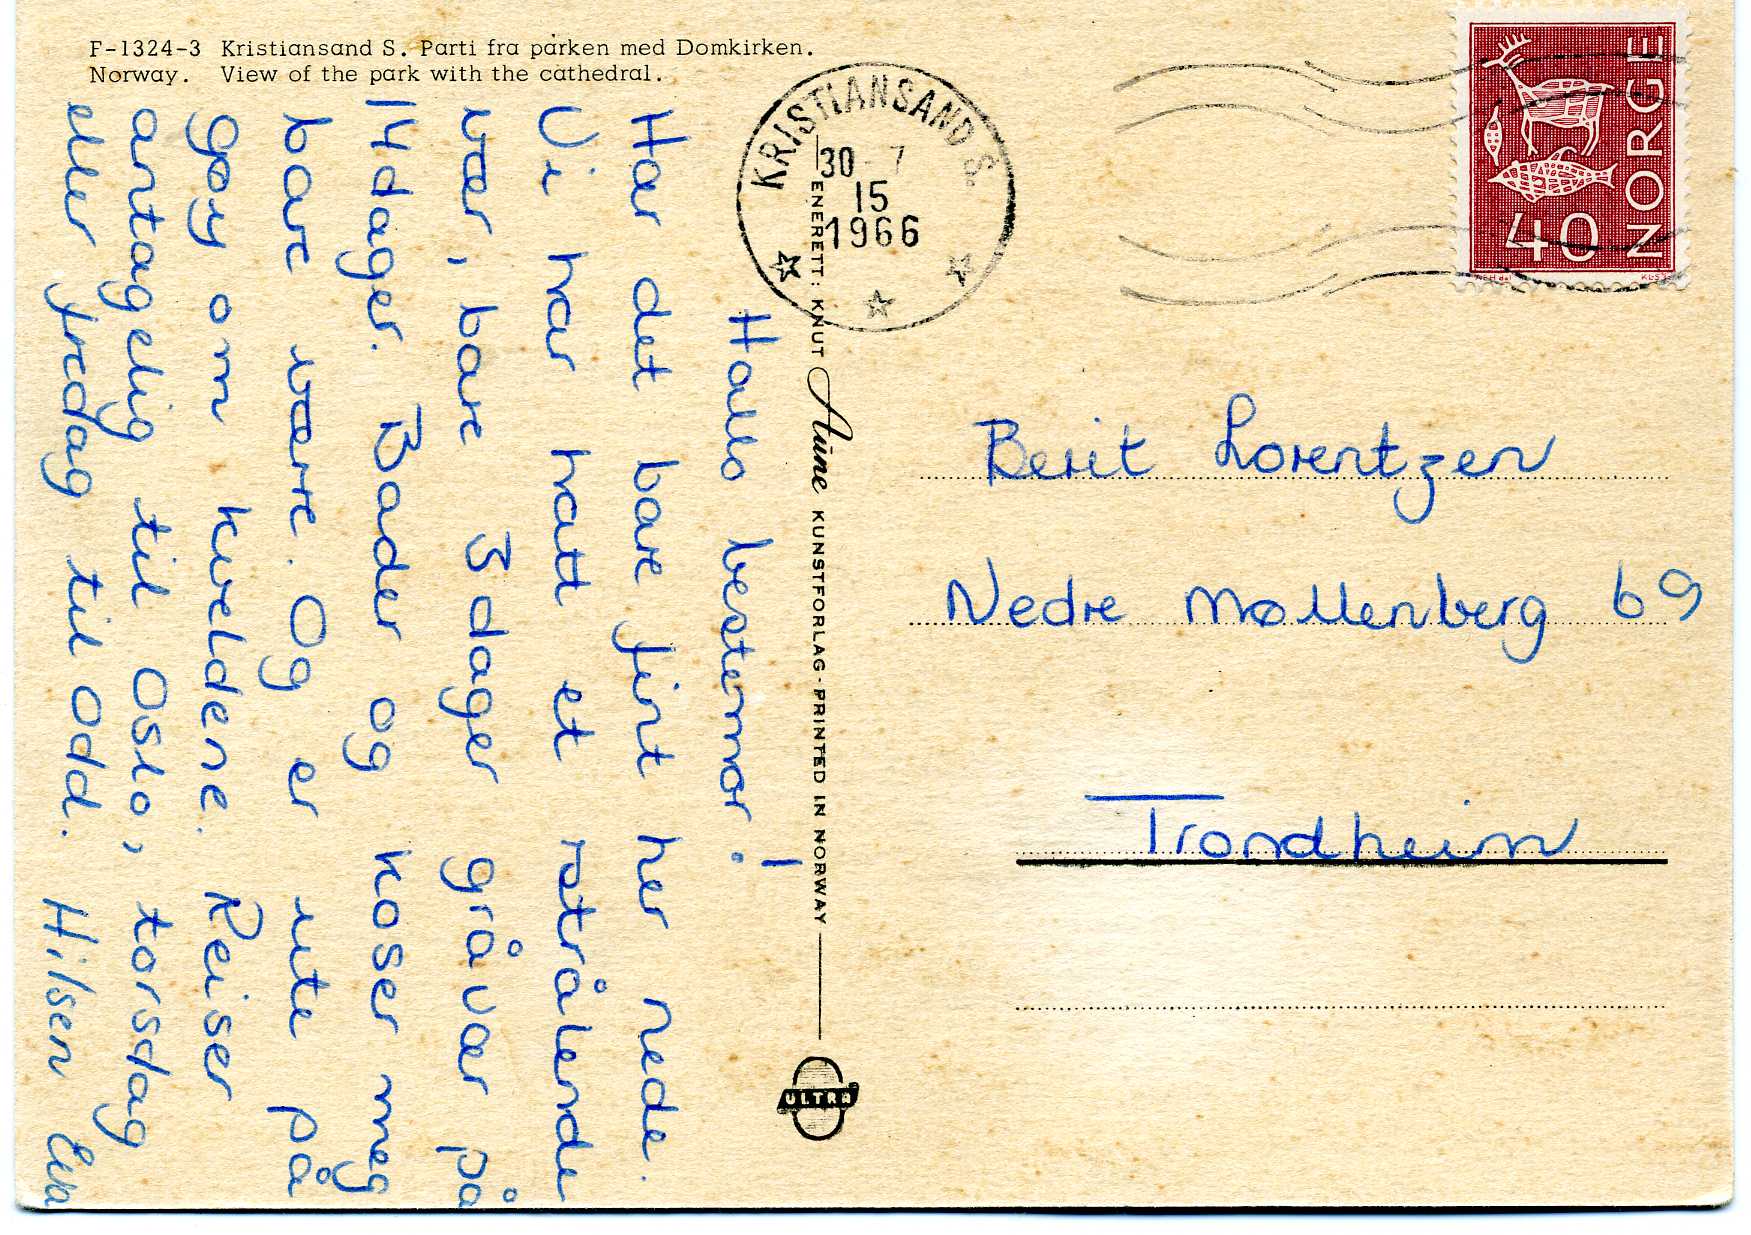 F-1324-3 Kristiansand S. Parti fra parken med Domkirken.
Norway. View of the park with the cathedral.
Hallo bestemor!
Har det bare fint her nede.
Vi har hatt et strålende
vær, bare 3 dager gråvær på
14 dager. Bader og koser meg
bare være. Og er ute på
gøy om kveldene. Reiser
antagelig til Oslo, torsdag
eller fredag til Odd. Hilsen Eva
ENERETT: KNUT Aune KUNSTFORLAG - PRINTED IN NORWAY
ULTRA
KRISTIANSAND S.
30 - 7
15
1966
NORGE
40
Berit Lorentzen
Nedre Møllenberg 69
Trondheim